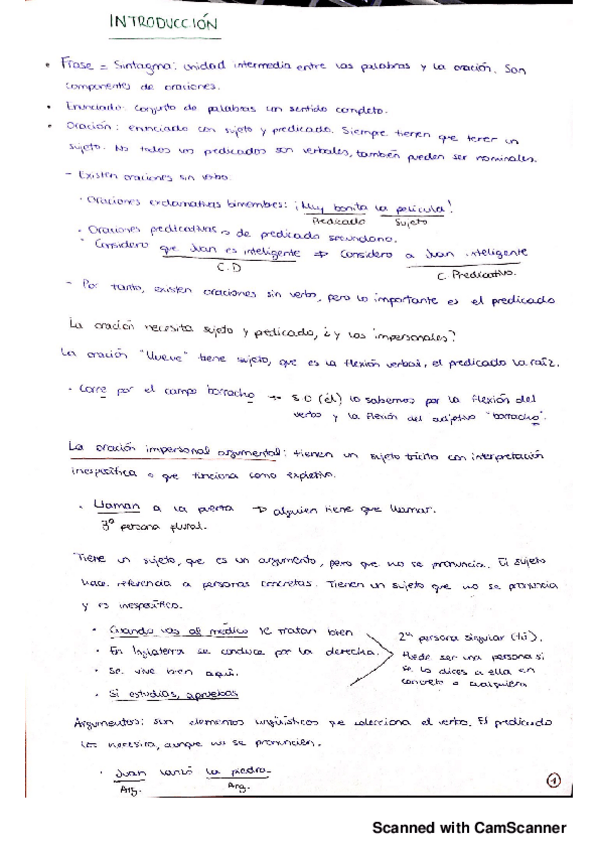 INTRODUCCIÓN
• Frase = Sintagma: unidad intermedia entre las palabras y la oración. Son
componentes de oraciones.
• Enunciado: conjunto de palabras con sentido completo.
• Oración: enunciado con sujeto y predicado. Siempre tienen que tener un
sujeto. No todos los predicados son verbales, también pueden ser nominales.
- Existen oraciones sin verbo.
• Oraciones exclamativas bimembres: ¡Muy bonita la película!
Predicado Sujeto
• Oraciones predicativas → de predicado secundario.
• Considero que Juan es inteligente → Considero a Juan inteligente
C.D C. Predicativo.
- Por tanto, existen oraciones sin verbo, pero lo importante es el predicado
La oración necesita sujeto y predicado, ¿y las impersonales?
La oración "llueve" tiene sujeto, que es la flexión verbal, el predicado la raíz.
• Corre por el campo borracho → S.O (él) lo sabemos por la flexión del
verbo y la flexión del adjetivo "borracho".
La oración impersonal argumental: tienen un sujeto tácito con interpretación
inespecífica o que funciona como expletivo.
• Llaman a la puerta → alguien tiene que llamar.
3ª persona plural.
Tiene un sujeto, que es un argumento, pero que no se pronuncia. El sujeto
hace referencia a personas concretas. Tienen un sujeto que no se pronuncia
y es inespecífico.
• Cuando vas al médico te tratan bien
• En Inglaterra se conduce por la derecha.
• Se vive bien aquí.
• Si estudias, apruebas
2ª persona singular (tú).
Puede ser una persona si
se lo dices a ella en
concreto o cualquiera
Argumentos: son elementos lingüísticos que selecciona el verbo. El predicado
los necesita, aunque no se pronuncien.
• Juan lanzó la piedra.
Arg. Arg.
1
Scanned with CamScanner